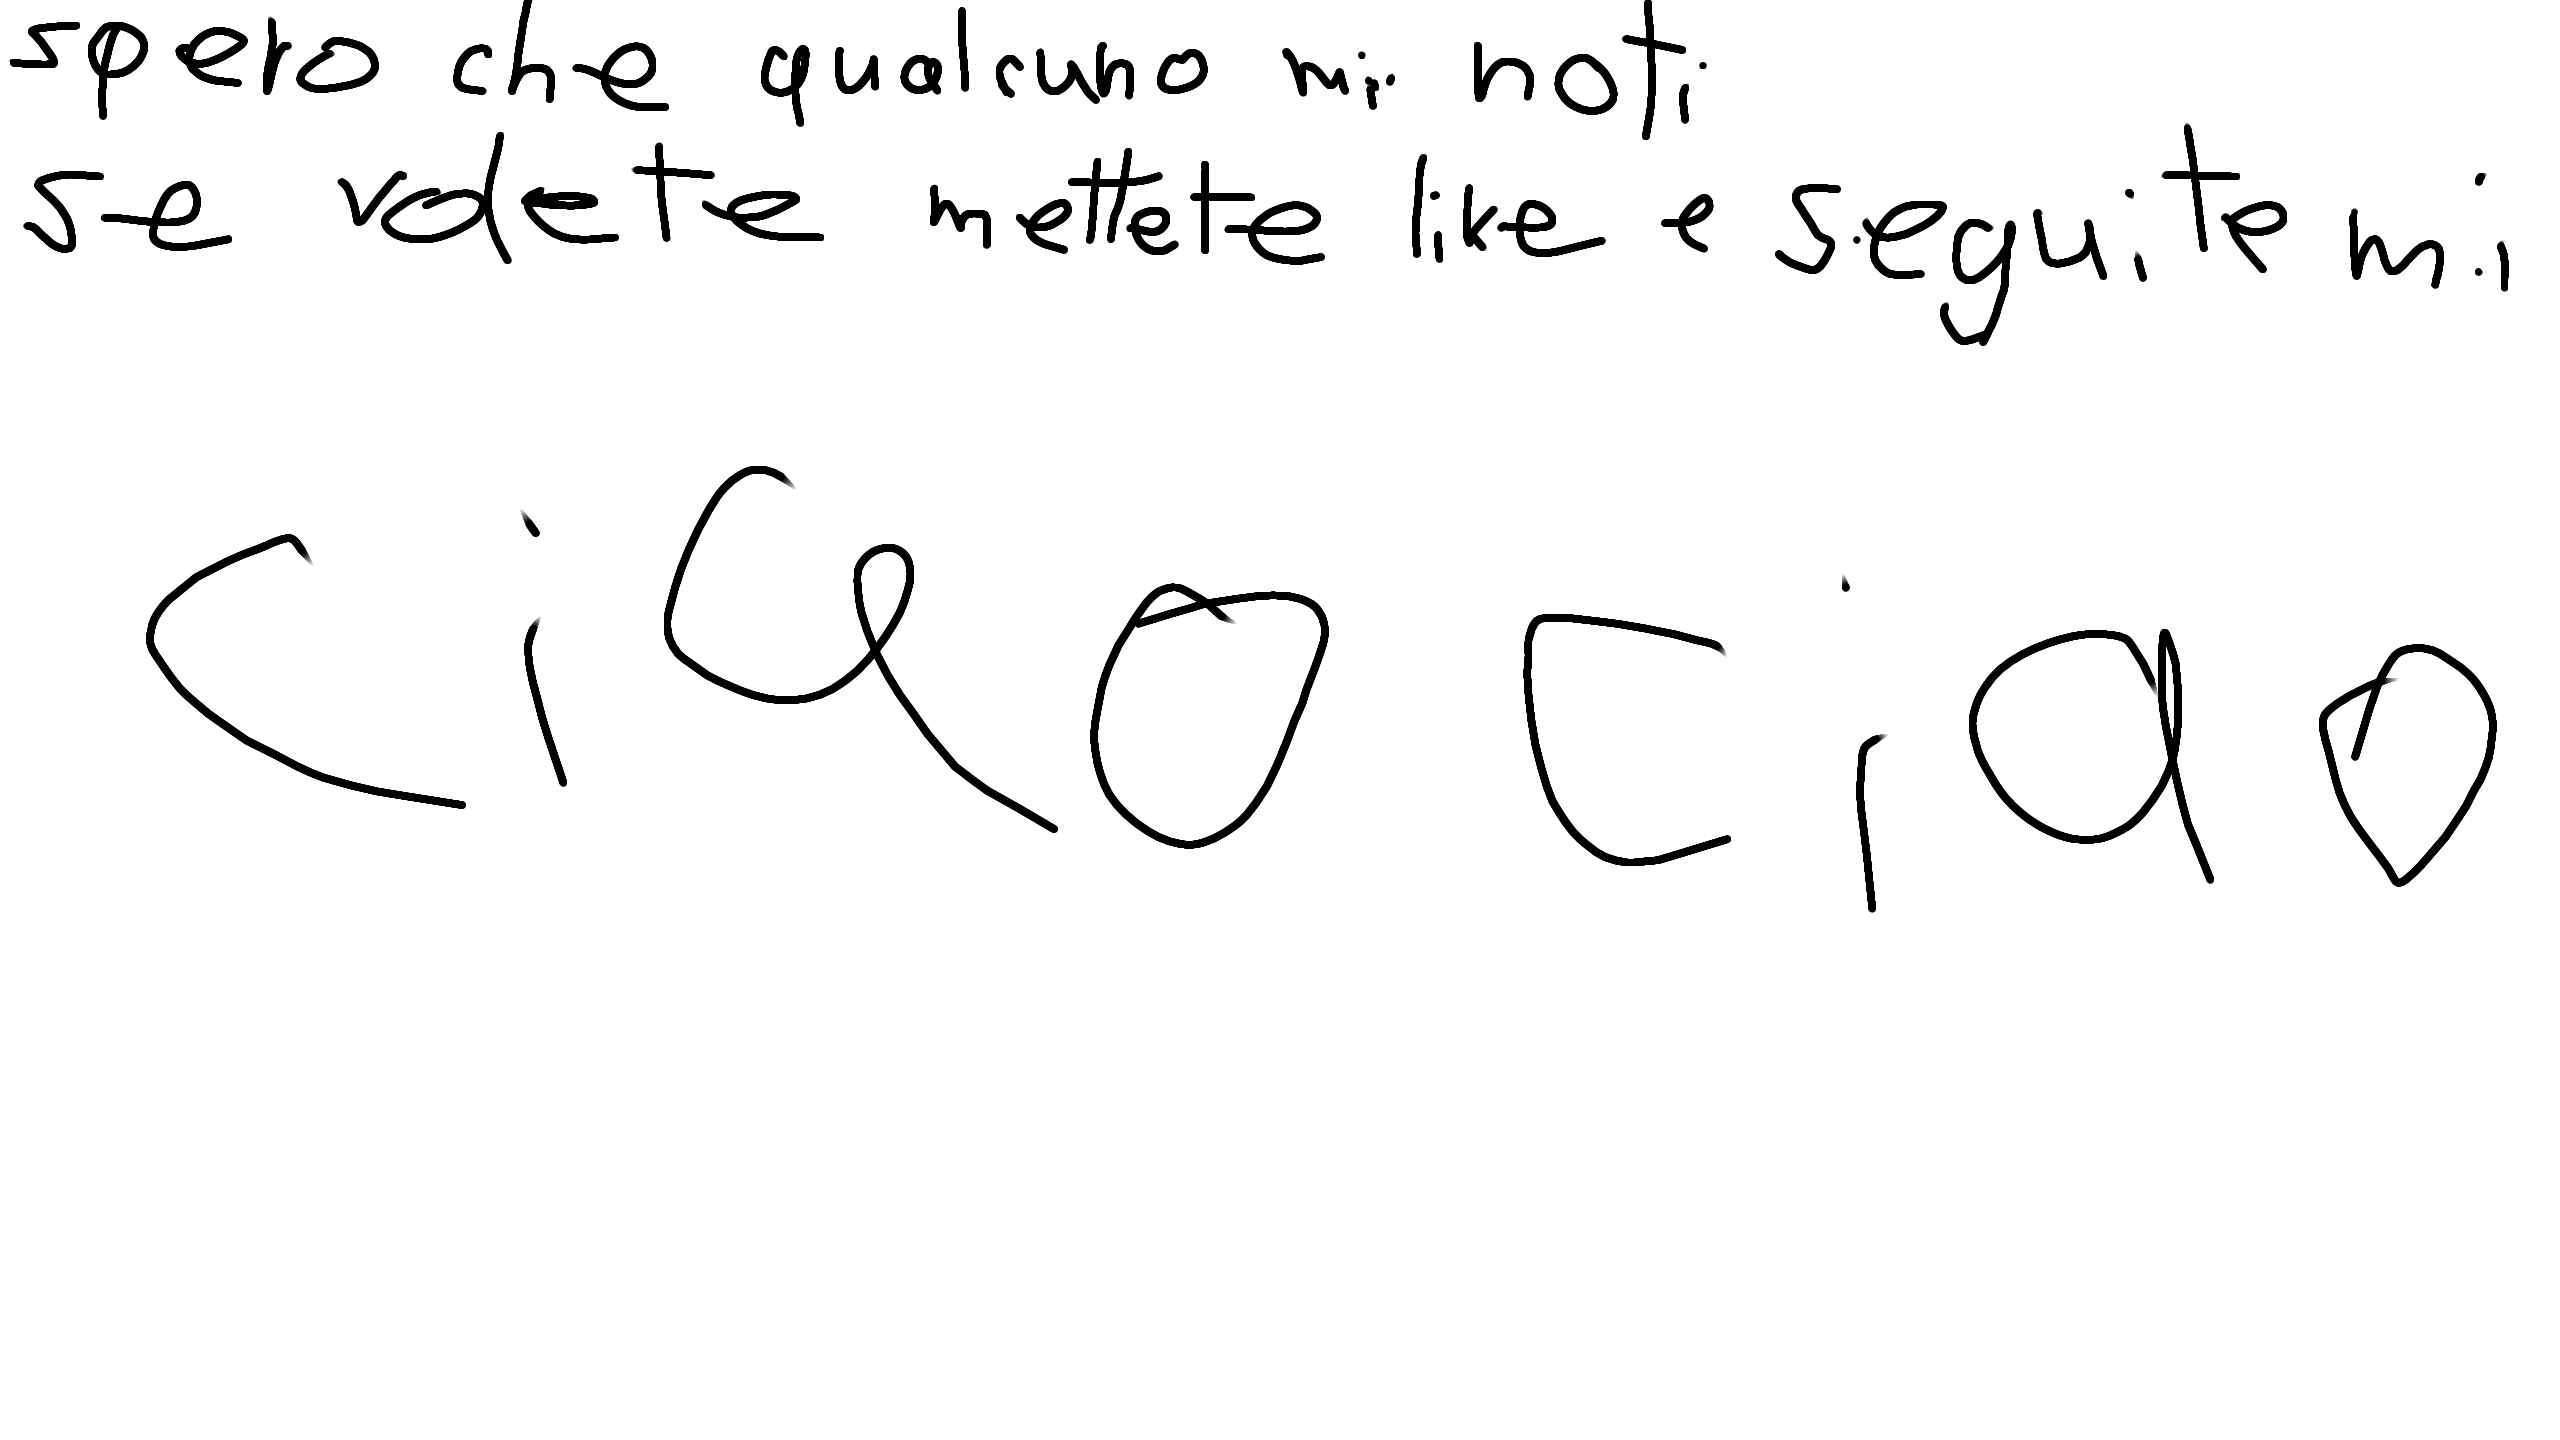 spero che qualcuno mi noti
se volete mettete like e seguite mi
ciao ciao